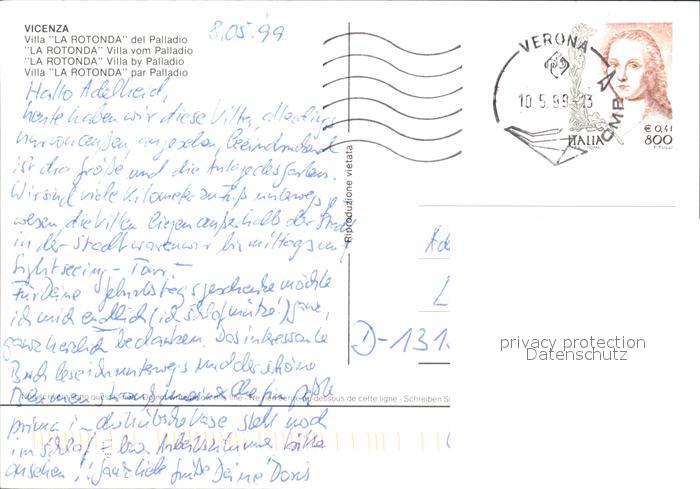 VICENZA
Villa "LA ROTONDA" del Palladio
"LA ROTONDA" Villa vom Palladio
"LA ROTONDA" Villa by Palladio
Villa "LA ROTONDA" par Palladio
8.05.99
Hallo Adelheid,
heute haben wir diese Villa, allerdings
nur von außen, angesehen, beeindruckend
ist die Größe und die Anlage des Gartens.
Wir sind viele Kilometer zu Fuß unterwegs ge-
wesen, die Villen liegen außerhalb der Stadt
in der Stadt waren wir bis mittags auf
Sightseeing-Tour -
Für Deine Geburtstagsgeschenke möchte
ich mich endlich (ich Schlafmütze!) ganz,
ganz herzlich bedanken. Das interessante
Buch lese ich unterwegs und der schöne
prima! - die hübsche Vase steht noch
im - bitte
ansehen!! Ganz liebe Grüße Deine Doris
Riproduzione vietata
VERONA
10.5.99-13
CMP
ITALIA
€ 0,41
800
Ad
L
D-131
privacy protection
Datenschutz
dessous de cette ligne - Schreiben